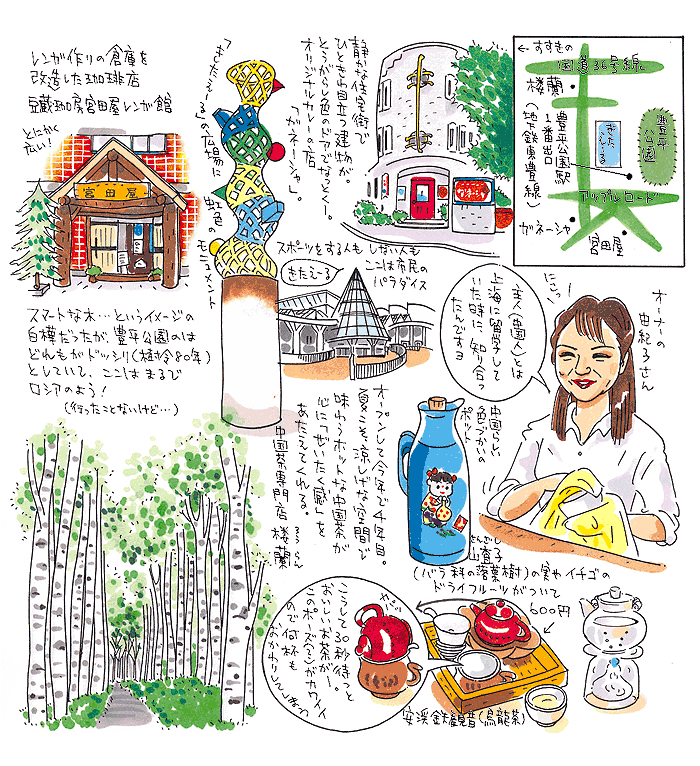 レンガ作りの倉庫を
改造した珈琲店
豆蔵珈房宮田屋レンガ館
とにかく
広い!
宮田屋
スマートな木…というイメージの
白樺だったが、豊平公園のは
どれもがドッシリ(樹令80年)
としていて、ここはまるで
ロシアのよう!
(行ったことないけど…)
「きたえーる」の広場に
虹色の
モニュメント
静かな住宅街で
ひときわ目立つ建物が。
とうがらし色のドアでなっとくー。
オリジナルカレーの店
「ガネーシャ」。
←すすきの
国道36号線
楼蘭
豊平公園駅
1番出口
(地鉄東豊線)
きたえーる
豊平
公園
アップルロード
ガネーシャ
宮田屋
スポーツをする人も しない人も
ここは市民の
パラダイス
きたえーる
主人(中国人)とは
上海に留学して
いた時に、知り合っ
たんですヨ
にこっ!
オーナーの
由紀子さん
オープンして今年で4年目。
夏こそ、涼しげな空間で
味わうホットな中国茶が
心に「ぜいたく感」を
あたえてくれる。
中国茶専門店 楼蘭
ろうらん
中国らしい
色づかいの
ポット
さんざし
山査子
(バラ科の落葉樹)の実やイチゴの
ドライフルーツがついて
600円
こうして30秒待つと
おいしいお茶が!
このポーズ(?)がカワイイ
ので何杯も
おかわりしてしまう
安渓鉄観音(烏龍茶)